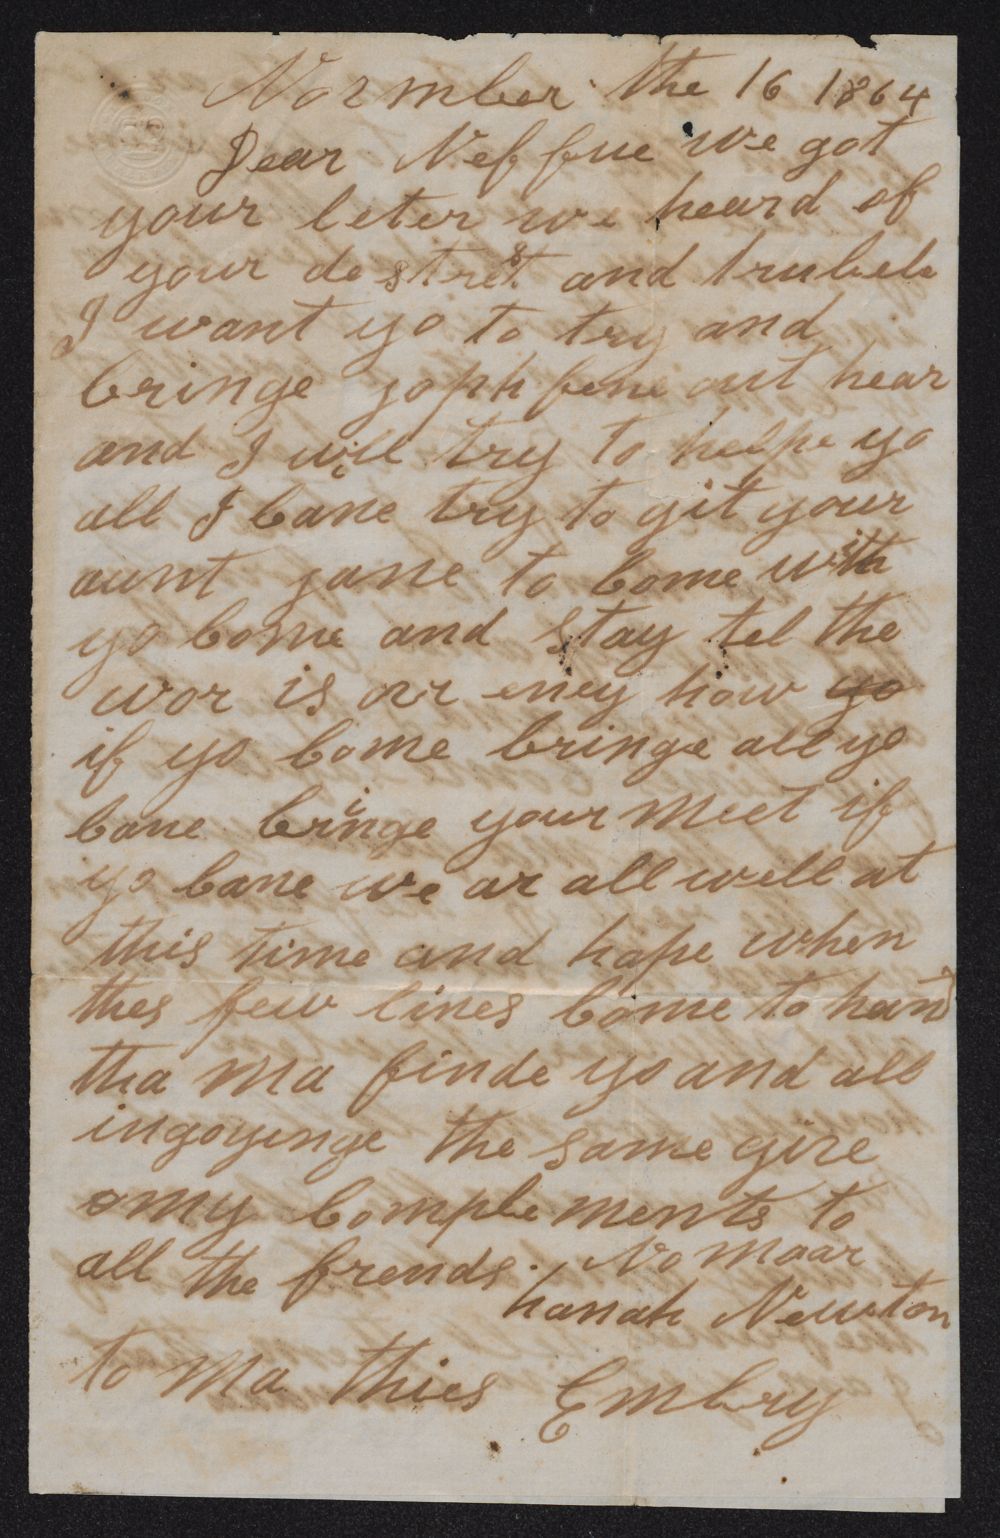 Novmber the 16 1864
Dear Neffue we got
your leter we heard of
your destrest and trubele
I want yo to try and
bringe joph fene out hear
and I will try to helpe yo
all I cane try to git your
aunt jane to come with
yo come and stay tel the
wor is ovr eney how yo
if yo come bringe all yo
cane bringe your meet if
yo cane we ar all well at
this time and hope when
thes few lines come to hand
tha ma finde yo and all
ingoyinge the same give
my complements to
all the frends. No moar
hanah Newton
to Ma thies Embry